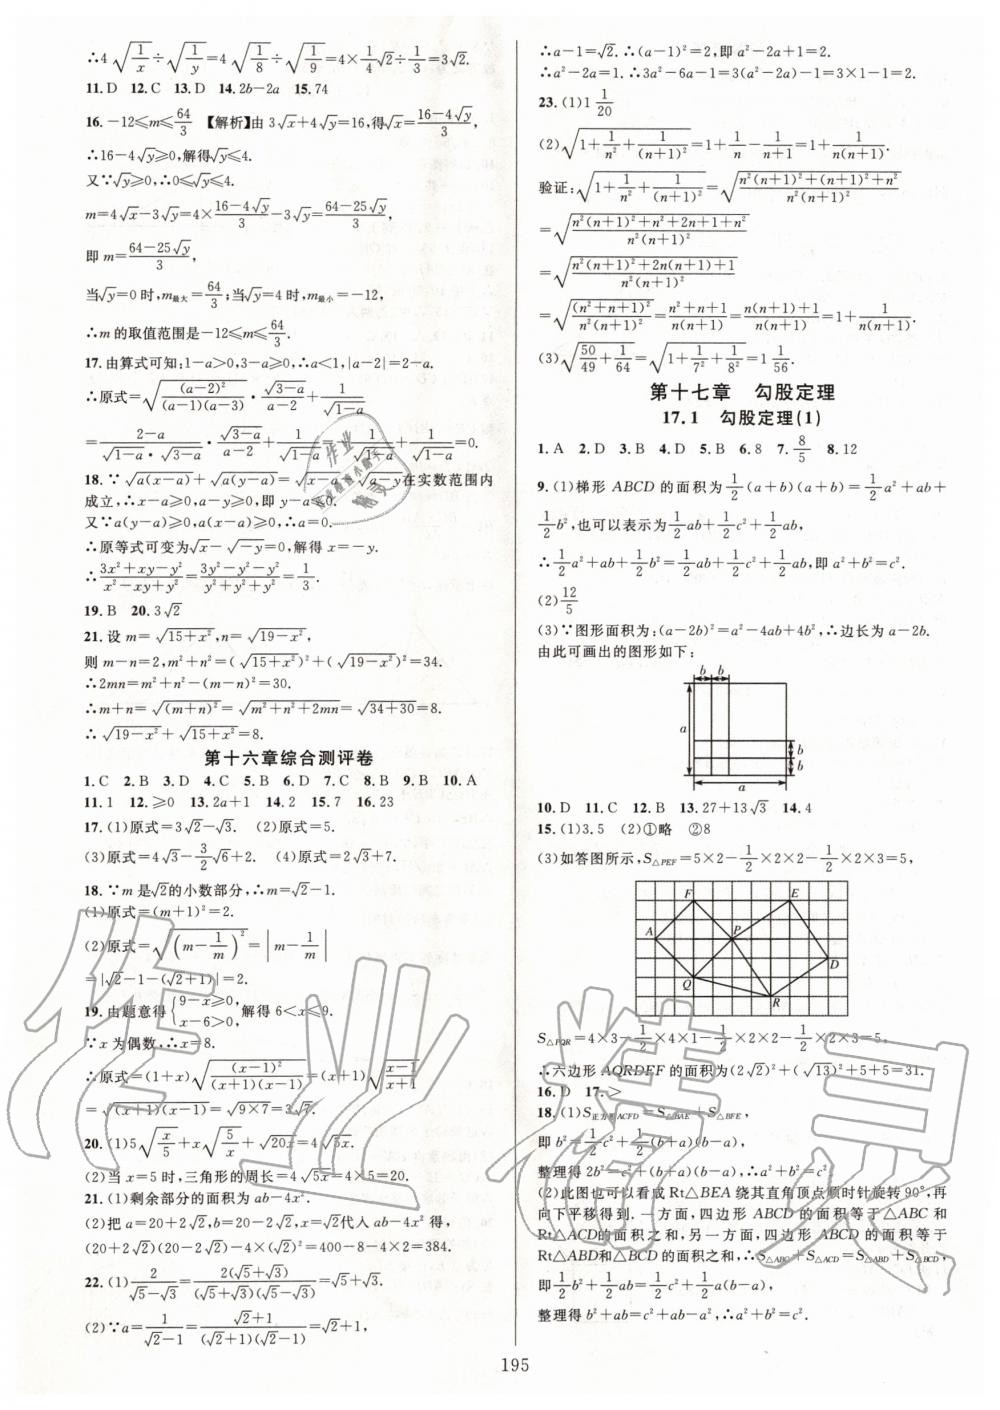 ∴4√(1/x)÷√(1/y)=4√(1/8)÷√(1/9)=4×1/4√2÷1/3=3√2.
11.D 12.C 13.D 14.2b−2a 15.74
16.−12≤m≤64/3 【解析】由3√x+4√y=16,得√x=(16−4√y)/3,
∴16−4√y≥0,解得√y≤4.
又∵√y≥0,∴0≤√y≤4.
m=4√x−3√y=4×(16−4√y)/3−3√y=(64−25√y)/3,
即m=(64−25√y)/3,
当√y=0时,m最大=64/3;当√y=4时,m最小=−12,
∴m的取值范围是−12≤m≤64/3.
17.由算式可知:1−a>0,3−a>0,∴a<1,|a−2|=2−a.
∴原式=√((a−2)²/((a−1)(a−3)))·√(3−a)/(a−2)+1/√(1−a)
=(2−a)/(√(1−a)·√(3−a))·√(3−a)/(a−2)+1/√(1−a)=−1/√(1−a)+1/√(1−a)=0.
18.∵√(a(x−a))+√(a(y−a))=√(x−a)−√(a−y)在实数范围内
成立,∴x−a≥0,a−y≥0,即y−a≤0.
又∵a(y−a)≥0,a(x−a)≥0,∴a=0.
∴原等式可变为√x−√(−y)=0,解得x=−y.
∴(3x²+xy−y²)/(x²−xy+y²)=(3y²−y²−y²)/(y²+y²+y²)=1/3.
19.B 20.3√2
21.设m=√(15+x²),n=√(19−x²),
则m−n=2,m²+n²=(√(15+x²))²+(√(19−x²))²=34.
∴2mn=m²+n²−(m−n)²=30.
∴m+n=√((m+n)²)=√(m²+n²+2mn)=√(34+30)=8.
∴√(19−x²)+√(15+x²)=8.
第十六章综合测评卷
1.C 2.B 3.D 4.C 5.B 6.D 7.C 8.B 9.B 10.A
11.1 12.≥0 13.2a+1 14.2 15.7 16.23
17.(1)原式=3√2−√3. (2)原式=5.
(3)原式=4√3−3/2√6+2. (4)原式=2√3+7.
18.∵m是√2的小数部分,∴m=√2−1.
(1)原式=(m+1)²=2.
(2)原式=√((m−1/m)²)=|m−1/m|
=|√2−1−(√2+1)|=2.
19.由题意得{9−x≥0, x−6>0, 解得6<x≤9.
∵x为偶数,∴x=8.
∴原式=(1+x)√((x−1)²/((x+1)(x−1)))=(1+x)√((x−1)/(x+1))
=√((1+x)(x−1))=√(9×7)=3√7.
20.(1)5√(x/5)+x√(5/x)+√(20x)=4√(5x).
(2)当x=5时,三角形的周长=4√(5x)=4×5=20.
21.(1)剩余部分的面积为ab−4x².
(2)把a=20+2√2,b=20−2√2,x=√2代入ab−4x²得,
(20+2√2)(20−2√2)−4×(√2)²=400−8−4×2=384.
22.(1)2/(√5−√3)=2(√5+√3)/((√5+√3)(√5−√3))=√5+√3.
(2)∵a=1/(√2−1)=(√2+1)/((√2+1)(√2−1))=√2+1,
∴a−1=√2.∴(a−1)²=2,即a²−2a+1=2.
∴a²−2a=1.∴3a²−6a−1=3(a²−2a)−1=3×1−1=2.
23.(1)1 1/20
(2)√(1+1/n²+1/(n+1)²)=1+1/n−1/(n+1)=1+1/(n(n+1)).
验证:√(1+1/n²+1/(n+1)²)=√((n²(n+1)²+(n+1)²+n²)/(n²(n+1)²))
=√((n²(n+1)²+n²+2n+1+n²)/(n²(n+1)²))
=√((n²(n+1)²+2n(n+1)+1)/(n²(n+1)²))
=√((n²+n+1)²/(n²(n+1)²))=(n²+n+1)/(n(n+1))=(n(n+1)+1)/(n(n+1))=1+1/(n(n+1)).
(3)√(50/49+1/64)=√(1+1/7²+1/8²)=1 1/56
第十七章 勾股定理
17.1 勾股定理(1)
1.A 2.D 3.B 4.D 5.B 6.8 7.8/5 8.12
9.(1)梯形ABCD的面积为1/2(a+b)(a+b)=1/2a²+ab+
1/2b²,也可以表示为1/2ab+1/2c²+1/2ab,
∴1/2a²+ab+1/2b²=1/2ab+1/2c²+1/2ab,即a²+b²=c².
(2)12/5
(3)∵图形面积为:(a−2b)²=a²−4ab+4b²,∴边长为a−2b.
由此可画出的图形如下:
b b
a
b
b
a
10.D 11.C 12.B 13.27+13√3 14.4
15.(1)3.5 (2)①略 ②8
(3)如答图所示,S△PEF=5×2−1/2×2×2−1/2×3×2=5,
F E
A P
D
Q
R
S△PQR=4×3−1/2×4×1−1/2×2×2−1/2×3×2=5.
∴六边形AQRDEF的面积为(2√2)²+(√13)²+5+5=31.
16.D 17.>
18.(1)S正方形ACFD=S△BAE+S△BFE,
即b²=1/2c²+1/2(b+a)(b−a),
整理得2b²=c²+(b+a)(b−a),∴a²+b²=c².
(2)此图也可以看成Rt△BEA绕其直角顶点顺时针旋转90°,再
向下平移得到.一方面,四边形ABCD的面积等于△ABC和
Rt△ACD的面积之和,另一方面,四边形ABCD的面积等于
Rt△ABD和△BCD的面积之和,∴S△ABC+S△ACD=S△ABD+S△BCD,
即1/2b²+1/2ab=1/2c²+1/2a(b−a),
整理得b²+ab=c²+ab−a²,∴a²+b²=c².
195
作业精灵